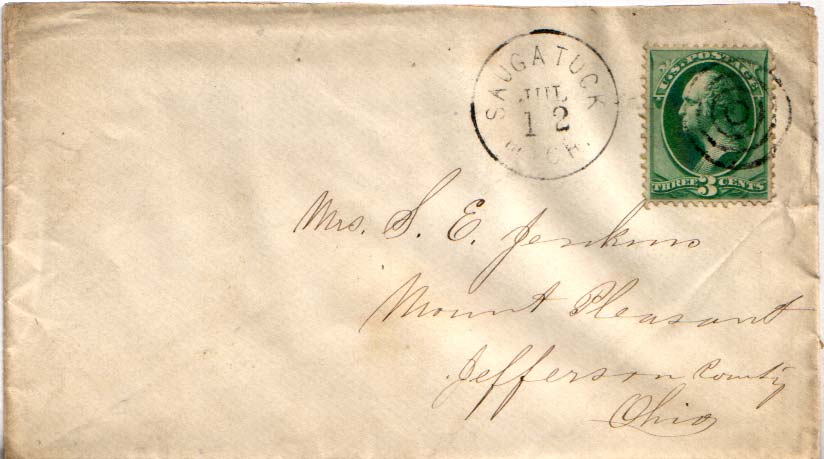 SAUGATUCK
JUL
12
MICH.
U.S. POSTAGE
THREE 3 CENTS
Mrs. S. E. Jenkins
Mount Pleasant
Jefferson County
Ohio